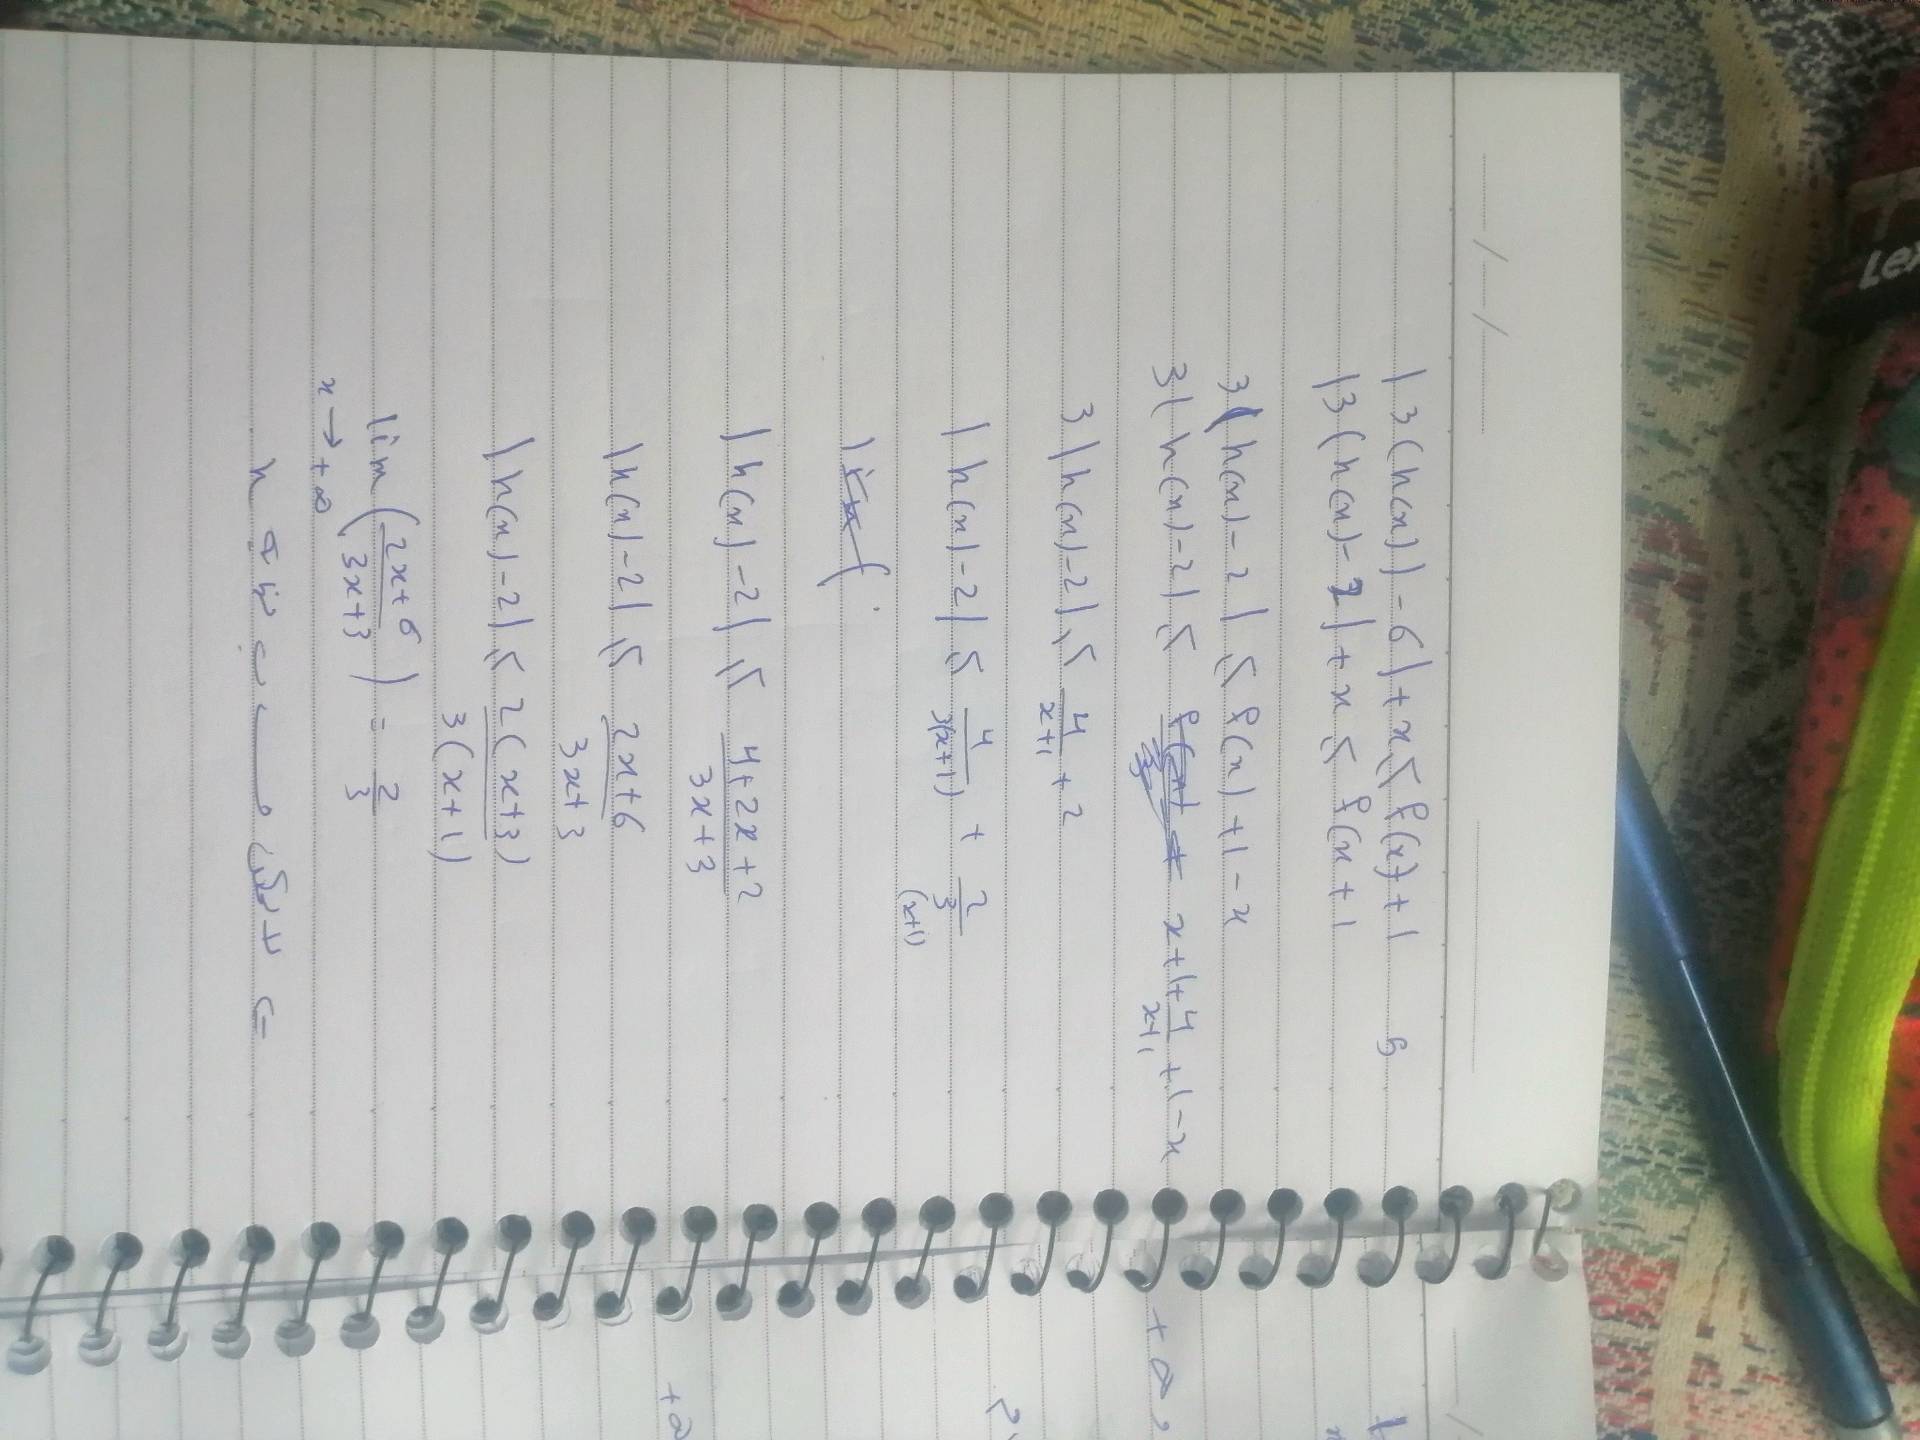 |3(h(x))-6|+x ≤ f(x)+1 5
|3(h(x)-2|+x ≤ f(x+1
3|h(x)-2| ≤ f(x)+1-x
3|h(x)-2| ≤ x+1+4/x+1 +1-x
3|h(x)-2| ≤ 4/x+1 + 2
|h(x)-2| ≤ 4/3(x+1) + 2/3 (x+1)
lim(
|h(x)-2| ≤ 4+2x+2/3x+3
|h(x)-2| ≤ 2x+6/3x+3
|h(x)-2| ≤ 2(x+3)/3(x+1)
lim x→+∞ (2x+6/3x+3) = 2/3
Lex
+∞
+∞